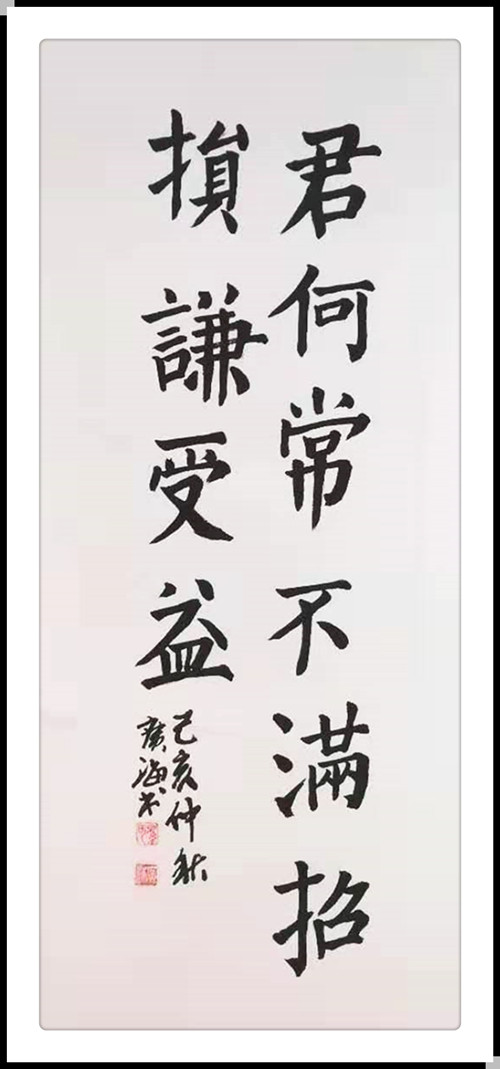 君何常不滿招
損謙受益
己亥仲秋
廣海书